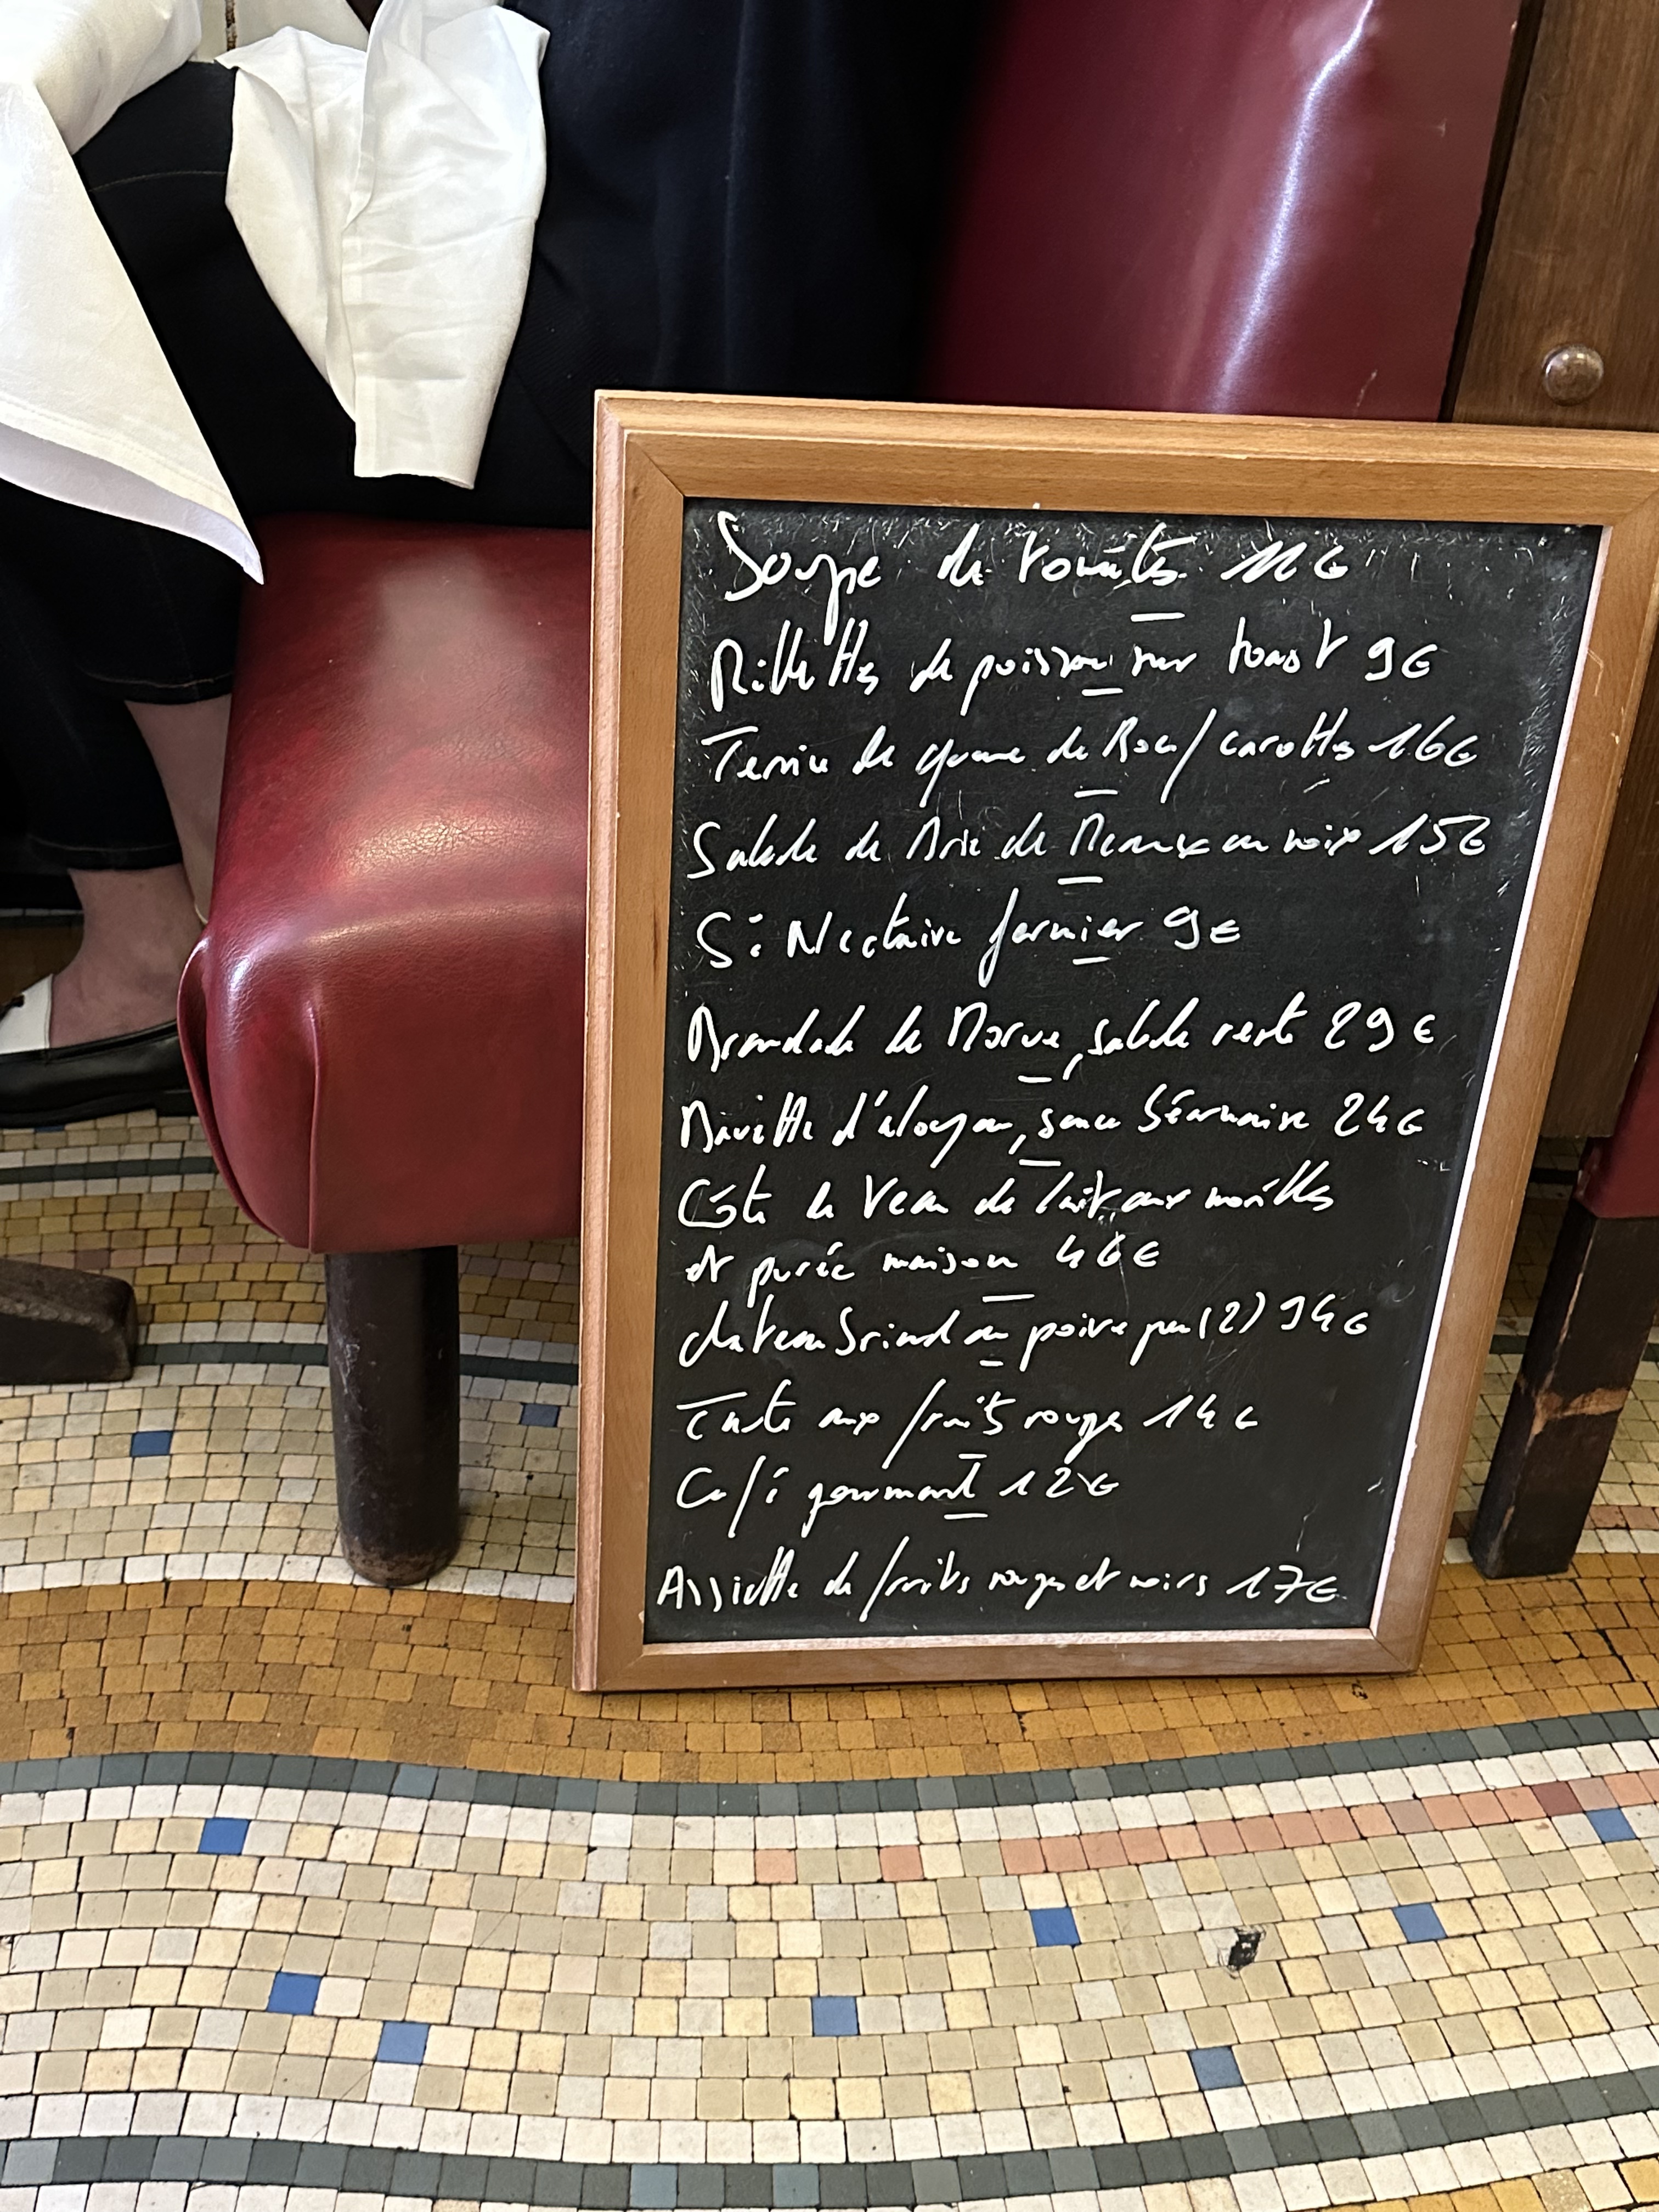 Soupe de tomates 11€
Rillettes de poisson sur toast 9€
Terrine de queue de Boeuf / carottes 16€
Salade de Brie de Meaux au noix 15€
St Nectaire fermier 9€
Brandade de Morue, salade verte 29€
Bavette d'aloyau, sauce béarnaise 24€
Côte de Veau de lait aux morilles
et purée maison 46€
chateaubriand au poivre pour (2) 94€
Tarte aux fruits rouges 14€
Café gourmand 12€
Assiette de fruits rouges et noirs 17€